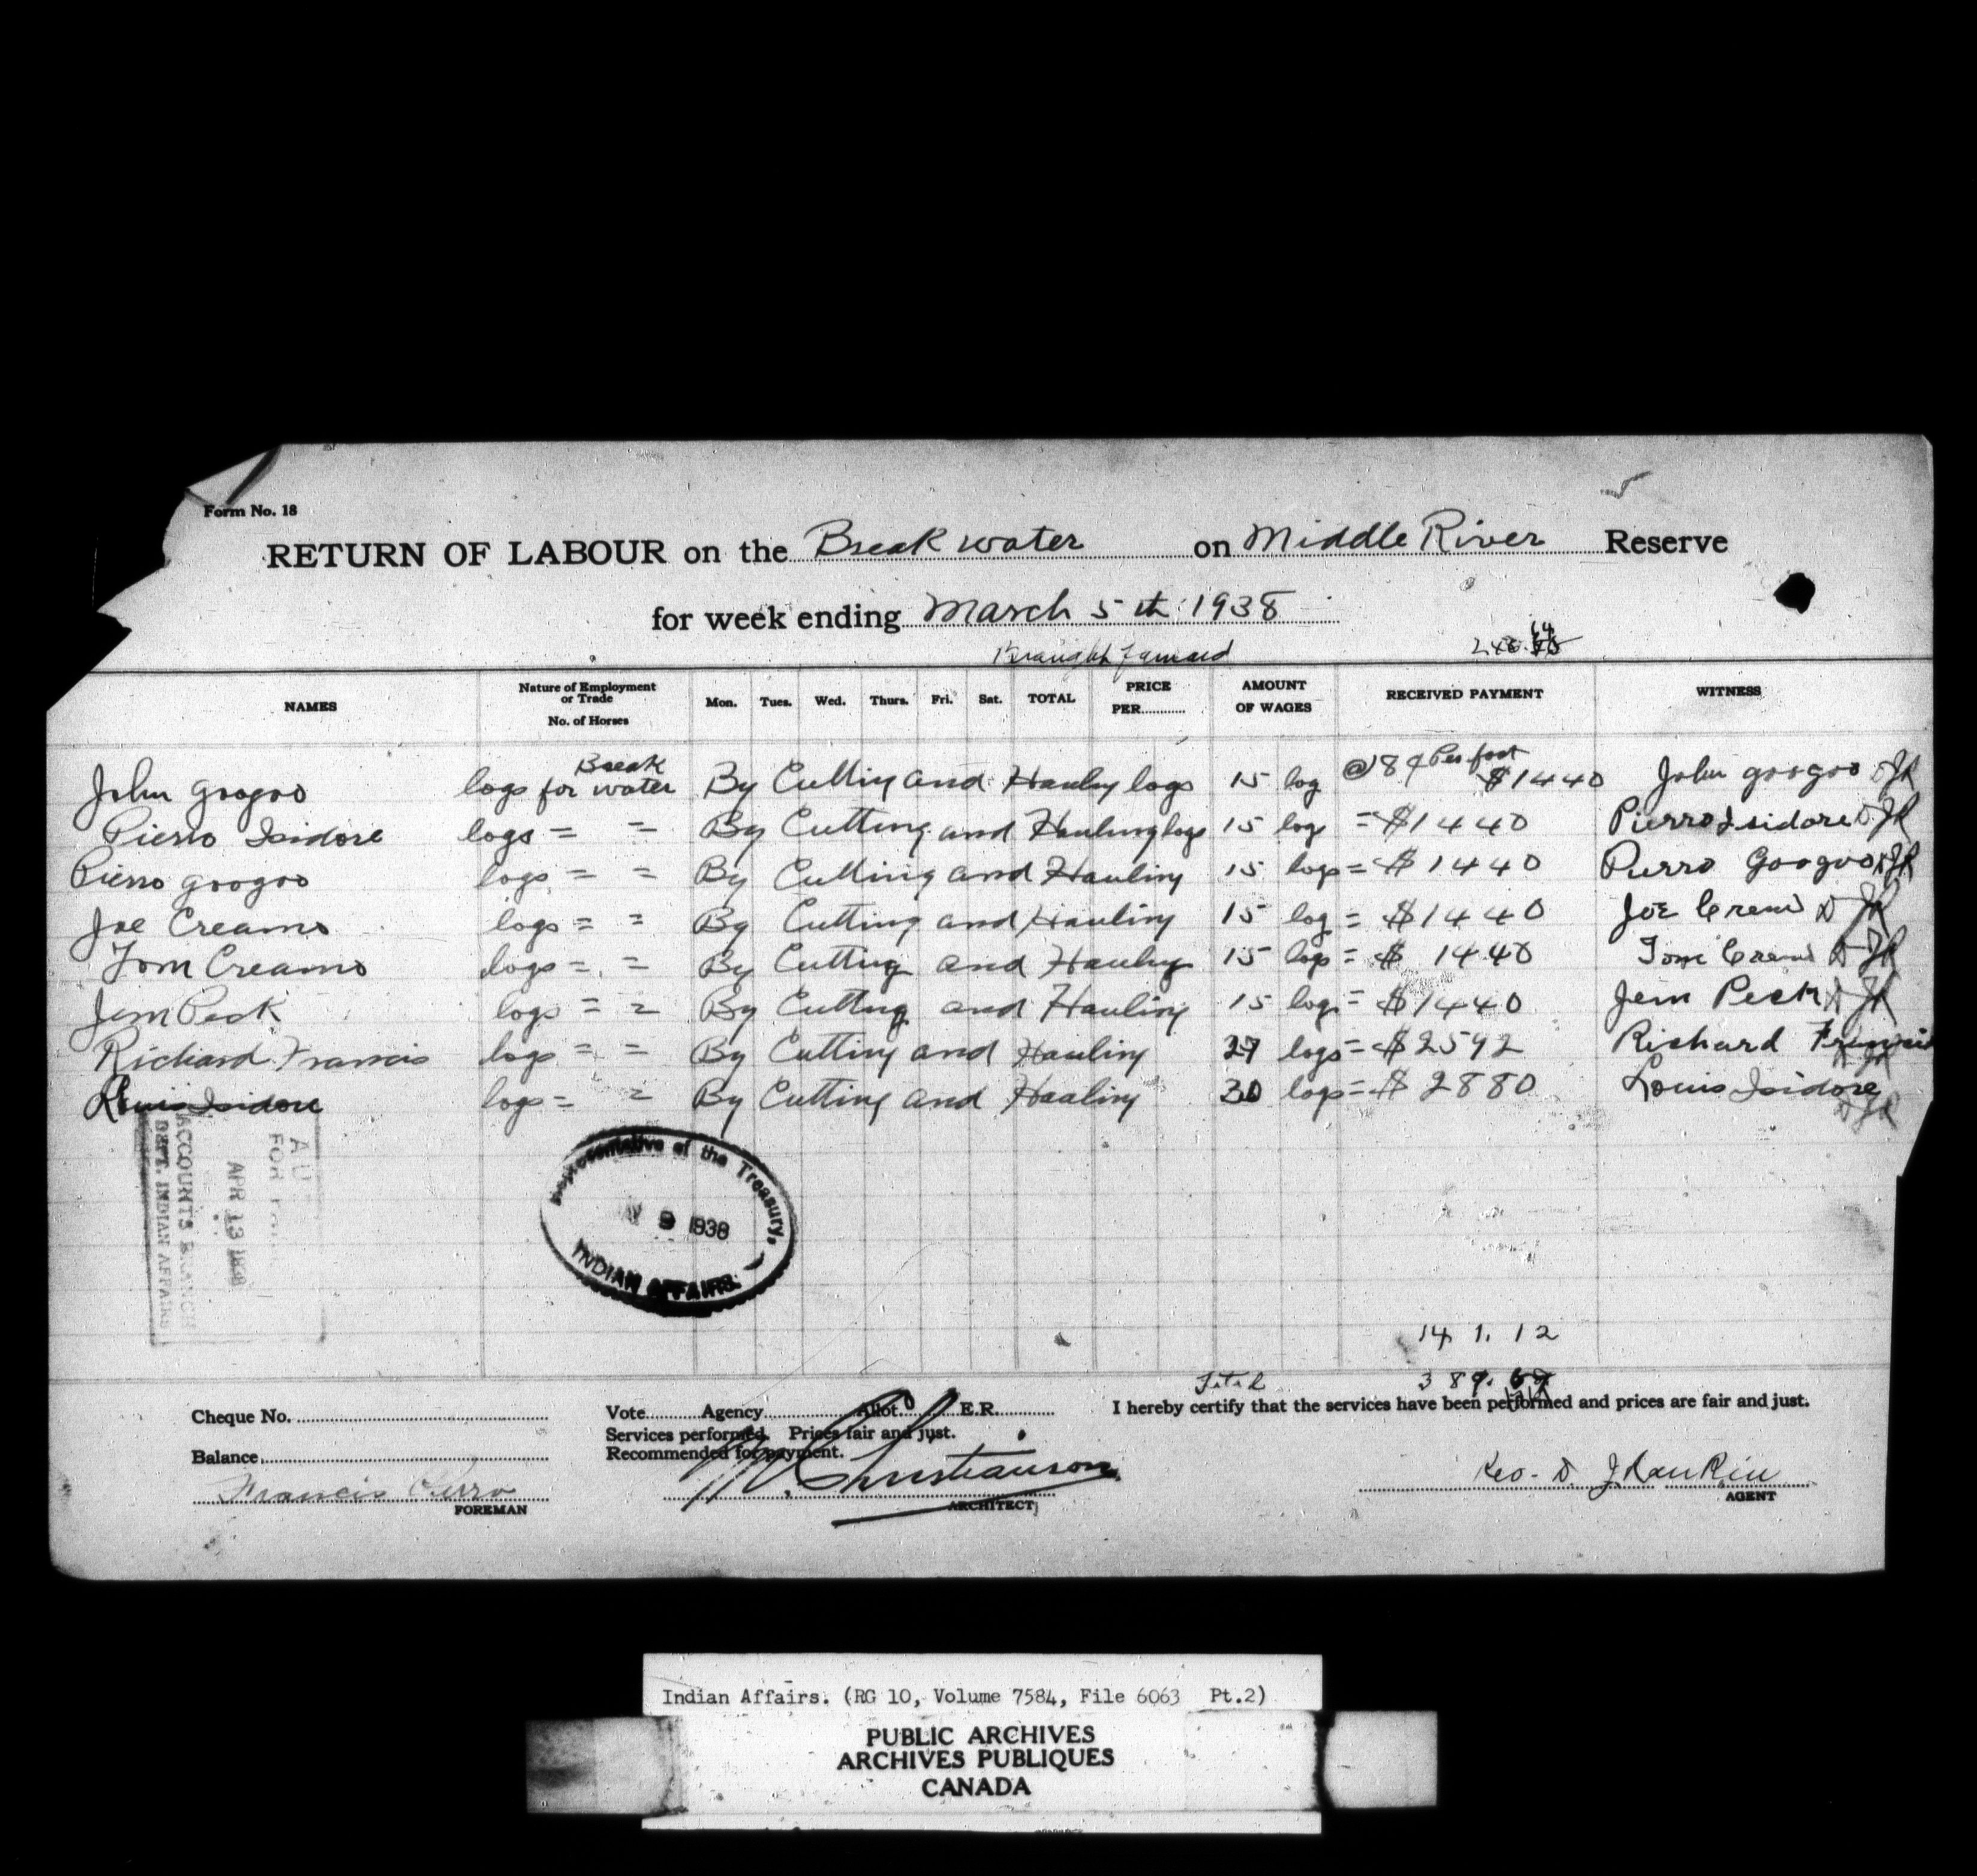 Form No. 18
RETURN OF LABOUR on the Break water on Middle River Reserve
for week ending March 5th 1938
Braught forward 248.
NAMES Nature of Employment or Trade No. of Horses Mon. Tues. Wed. Thurs. Fri. Sat. TOTAL PRICE PER AMOUNT OF WAGES RECEIVED PAYMENT WITNESS
John Googoo logs for Break water By Cutting and Hauling logs 15 log @ 8¢ Per foot $1440 John googoo
Pierro Isidore logs = = By Cutting and Hauling logs 15 log = $1440 Pierro Isidore
Pierro googoo logs = = By Cutting and Hauling 15 logs = $1440 Pierro Googoo
Joe Creamo logs = = By Cutting and Hauling 15 log = $1440 Joe Crem
Tom Creamo logs = = By Cutting and Hauling 15 logs = $1440 Tom Crem
Jem Peck logs = = By Cutting and Hauling 15 logs = $1440 Jem Peck
Richard Francis logs = = By Cutting and Hauling 27 logs = $2592 Richard Francis
Louis Isidore logs = = By Cutting and Hauling 30 logs = $2880 Louis Isidore
ACCOUNTS BRANCH
DEPT. INDIAN AFFAIRS
APR 13 1938
Representative of the Treasury,
9 1938
INDIAN AFFAIRS.
141.12
Total 389.
Cheque No.
Balance
Francis Pirro
FOREMAN
Vote Agency Allot. E.R.
Services performed. Prices fair and just.
Recommended for payment.
Christianson
ARCHITECT
I hereby certify that the services have been performed and prices are fair and just.
Geo. D. J Rankin
AGENT
Indian Affairs. (RG 10, Volume 7584, File 6063 Pt.2)
PUBLIC ARCHIVES
ARCHIVES PUBLIQUES
CANADA